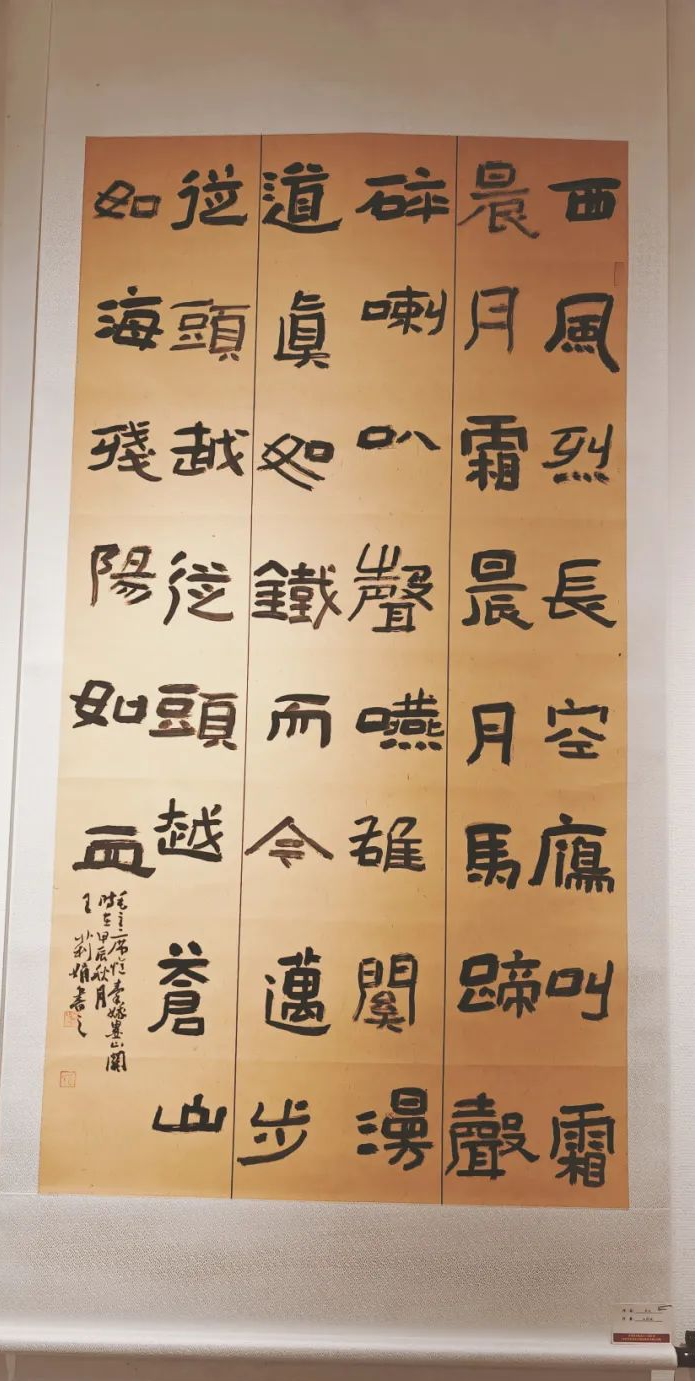 西風烈長空鴈叫霜
晨月霜晨月馬蹄聲
碎喇叭聲嚥雄關漫
道眞如鐵而今邁步
從頭越從頭越蒼山
如海殘陽如血
毛主席憶秦娥婁山關
時在甲辰秋月
王莉娟書之